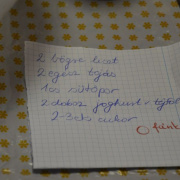 2 bögre liszt
2 egész tojás
1 cs sütőpor
2 doboz joghurt v. tejföl
2-3 dl cukor
O fánk